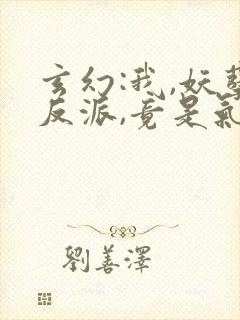 玄幻:我,妖孽
反派,竟是氣
劉善澤